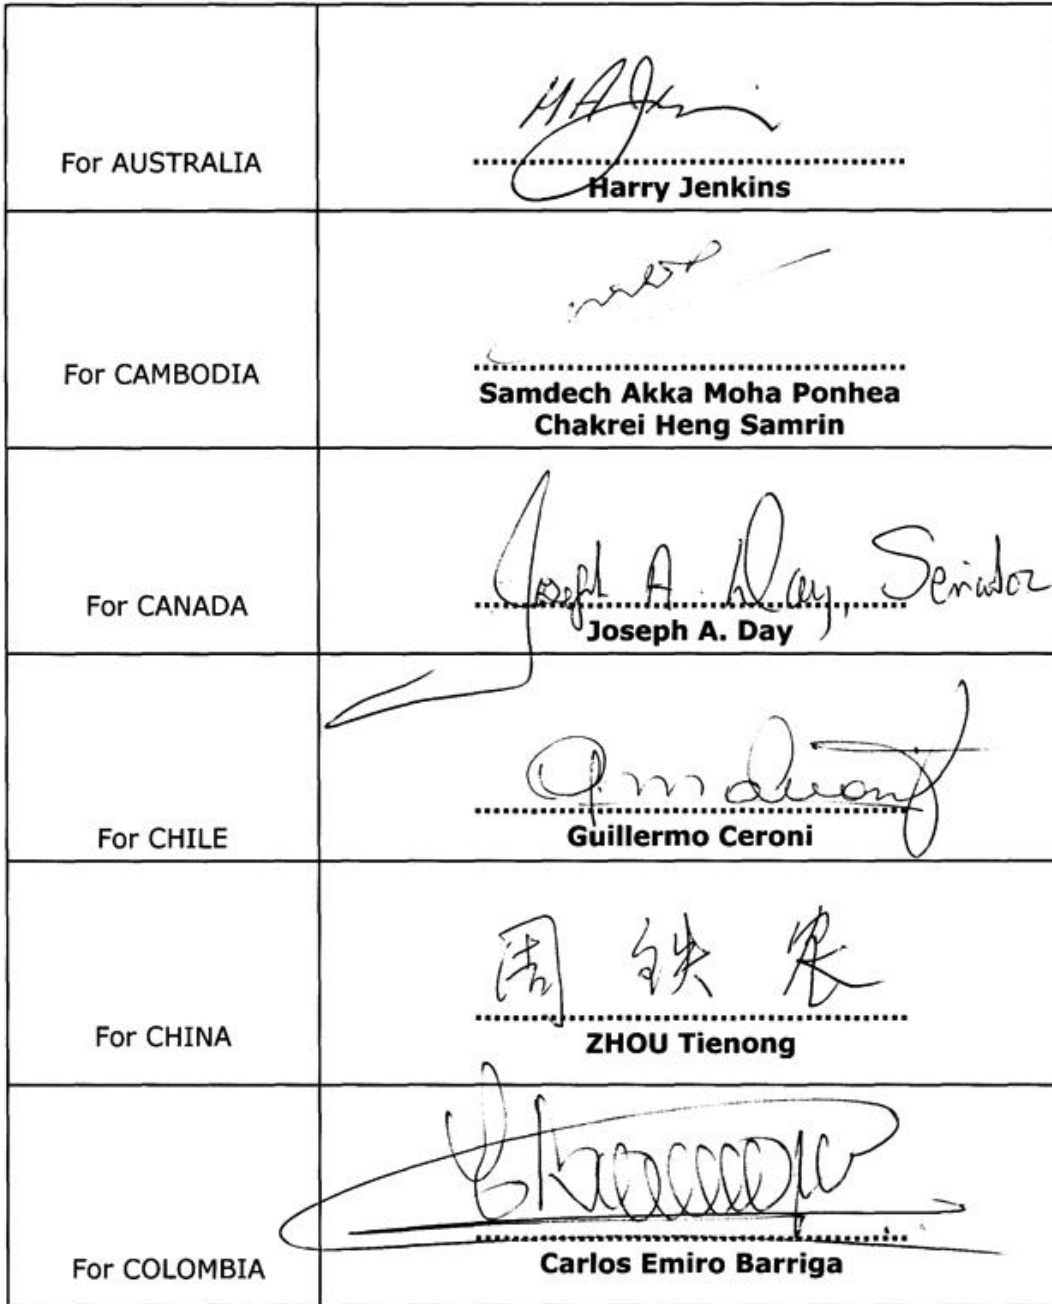 For AUSTRALIA
Harry Jenkins
For CAMBODIA
Samdech Akka Moha Ponhea
Chakrei Heng Samrin
For CANADA
Joseph A. Day, Senator
Joseph A. Day
For CHILE
Guillermo Ceroni
For CHINA
周 铁 农
ZHOU Tienong
For COLOMBIA
Carlos Emiro Barriga